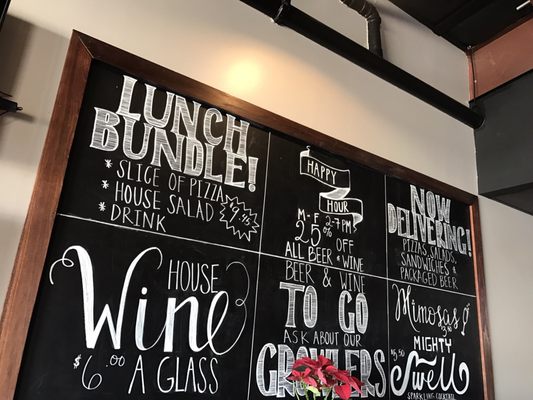 LUNCH
BUNDLE!
* SLICE OF PIZZA
* HOUSE SALAD
* DRINK
HAPPY
HOUR
M-F 2-7PM
25% OFF
ALL BEER & WINE
NOW
DELIVERING!
PIZZAS, SALADS,
SANDWICHES &
PACKAGED BEER
HOUSE
Wine
$6.00 A GLASS
BEER & WINE
TO GO
ASK ABOUT OUR
GROWLERS
Mimosas
MIGHTY
Swell
SPARKLING COCKTAIL